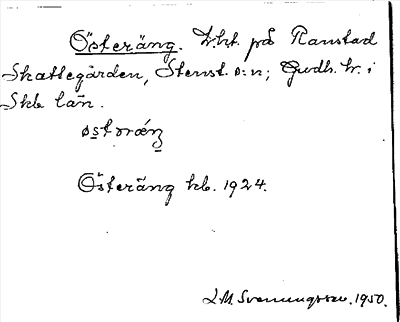 Österäng. Lht. på Ranstad
Skattegården, Stenst. s:n; Gudh. hr. i
Skb län.
Österäng kb. 1924.
L.M. Svenungsson. 1950.